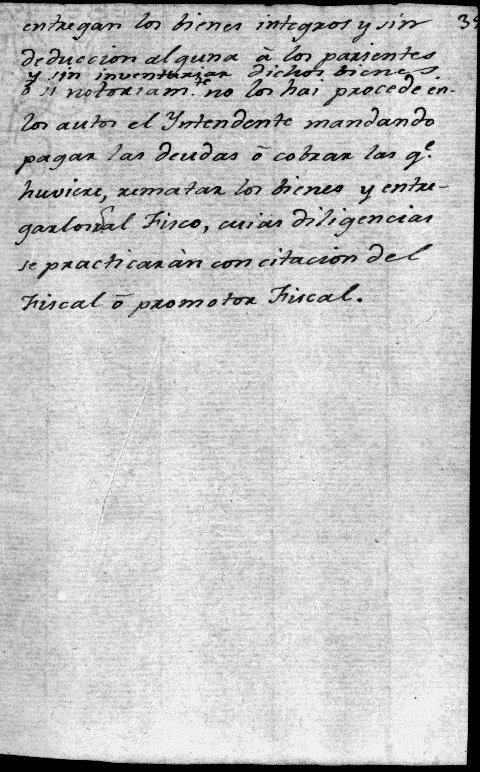 entregan los bienes integros y sin
deduccion alguna â los parientes
y sin inventariar dichos bienes
ô si notoriam.te no los hai procede en-
los autos el Yntendente mandando
pagar las deudas ô cobrar las q.e
huviere, rematar los bienes y entre-
garlos al Fisco, cuias diligencias
se practicaràn con citacion del
Fiscal ô promotor Fiscal.